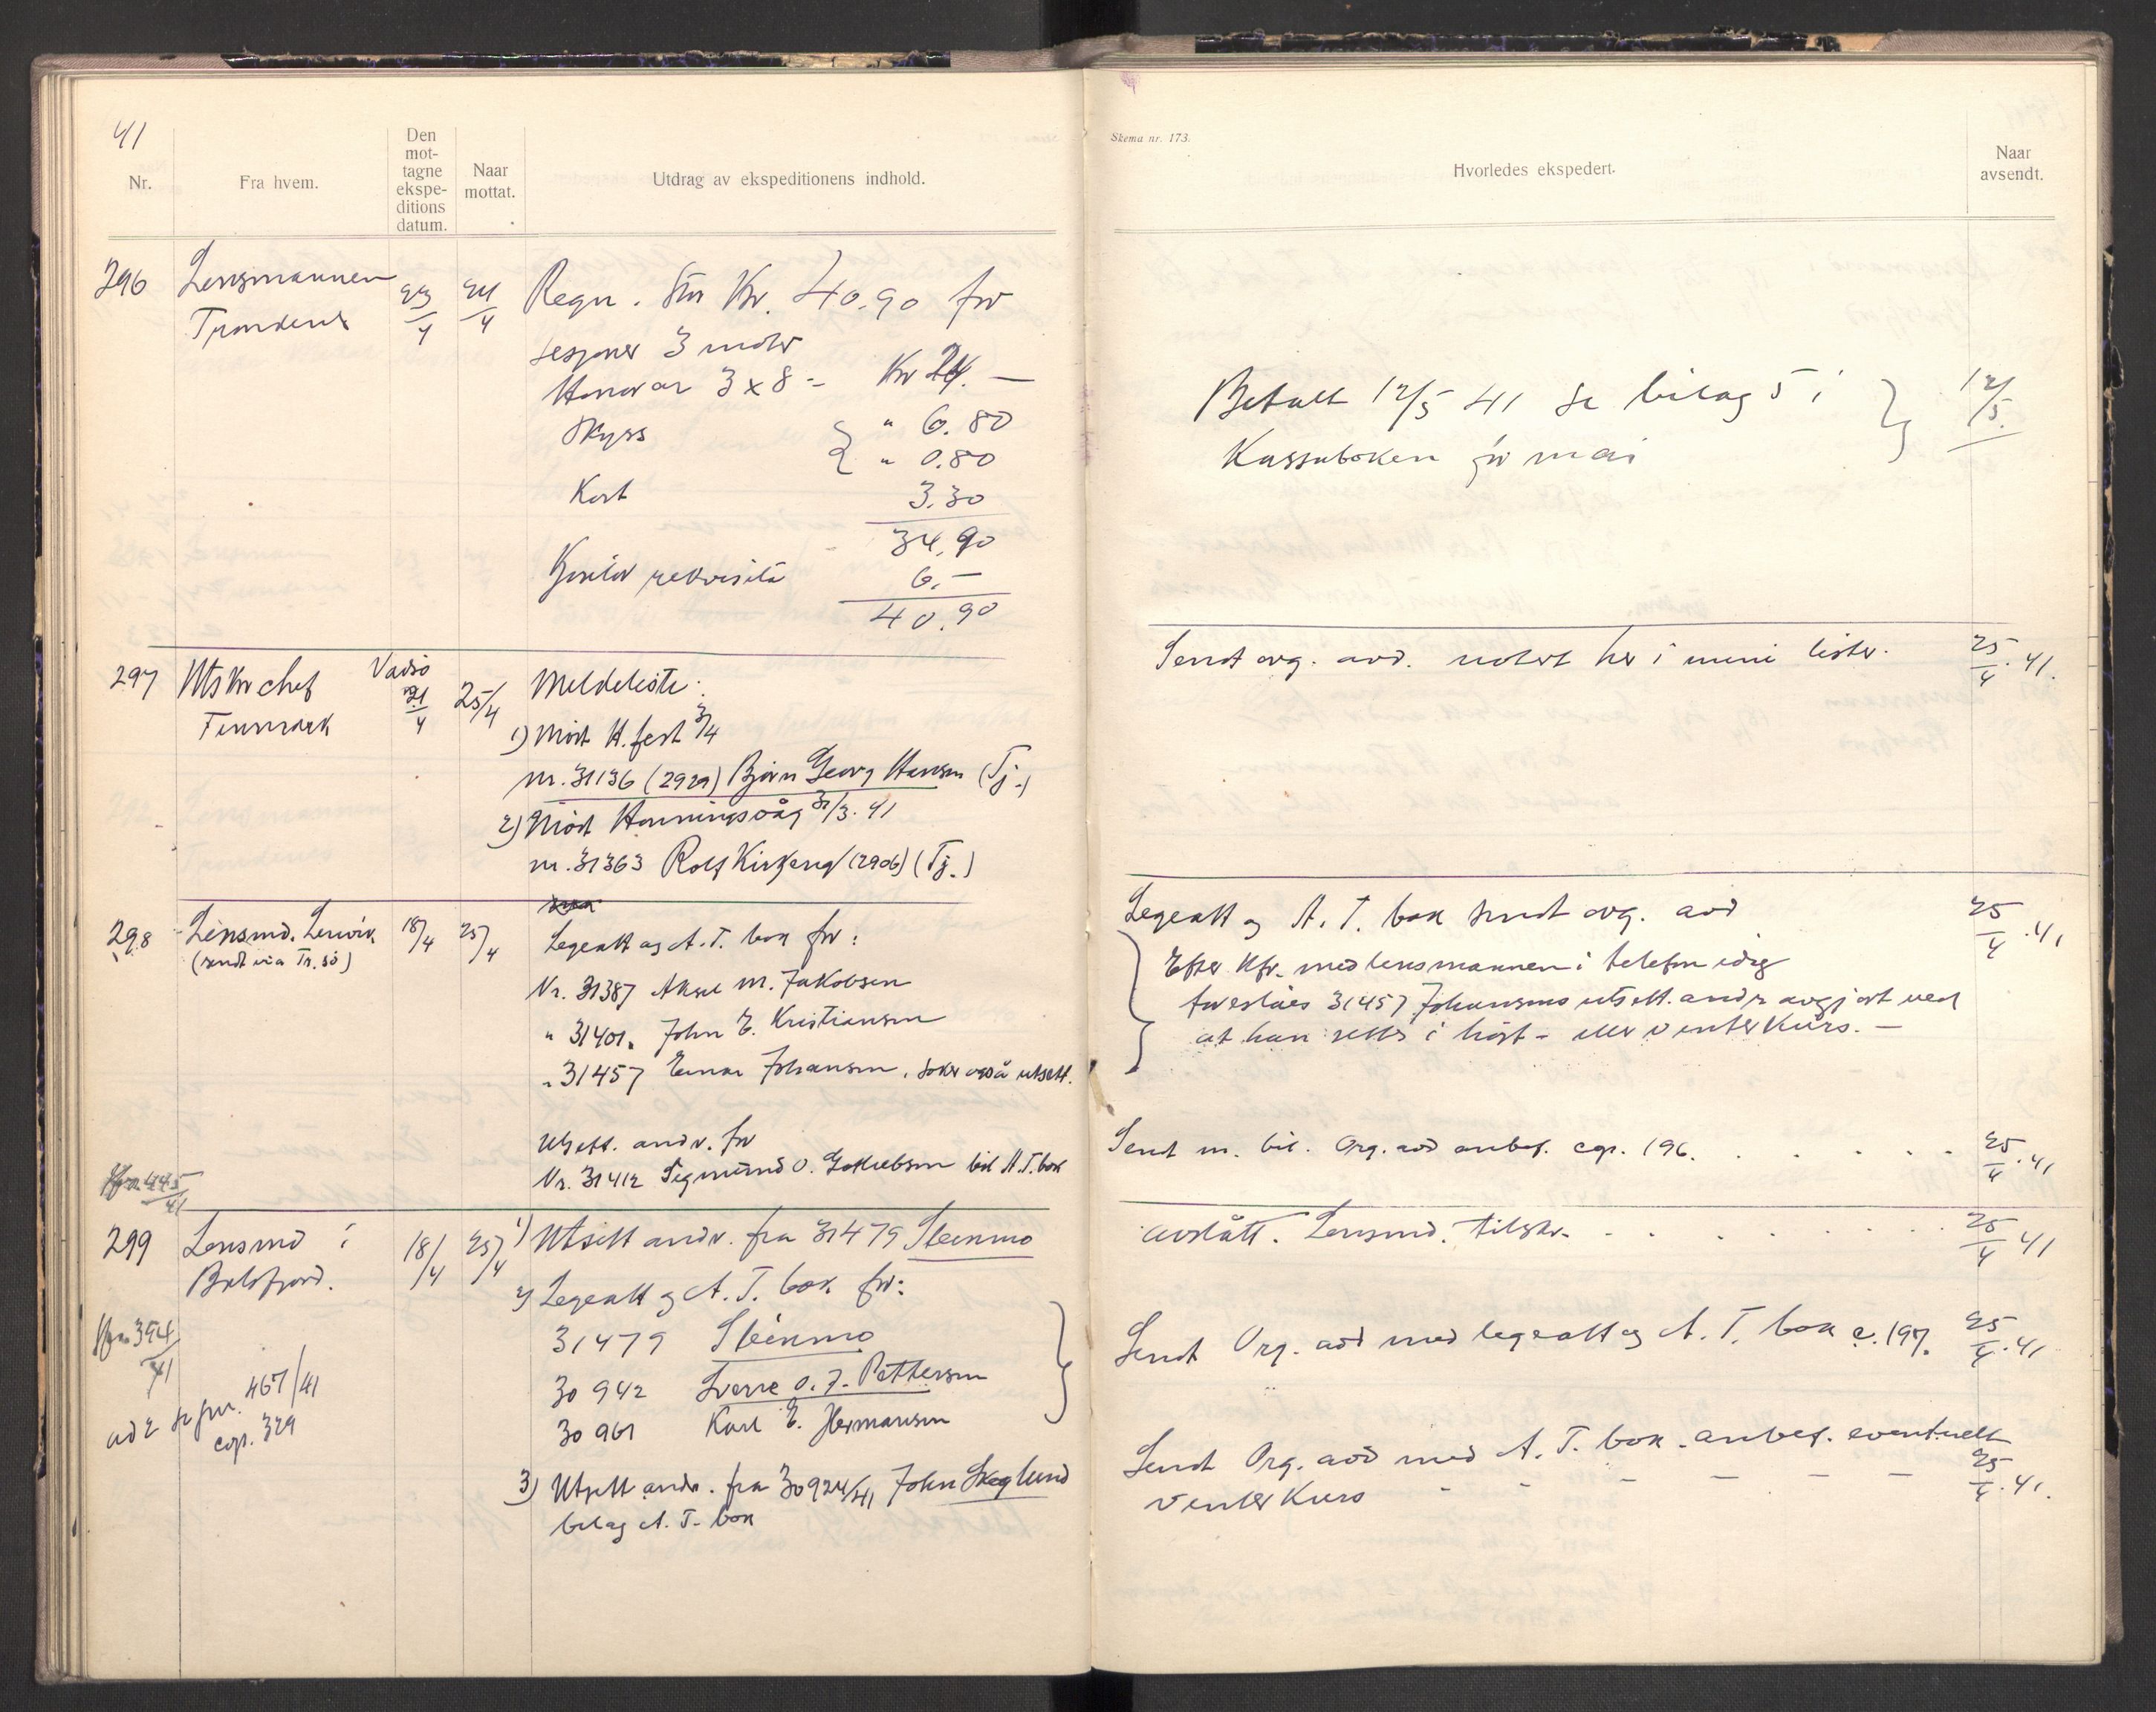 41
Nr.
Fra hvem.
Den
mot-
tagne
ekspe-
ditions
datum.
Naar
mottat.
Utdrag av ekspeditionens indhold.
296
Lensmannen
Trondenes
23/4
24/4
Regn. stor Kr. 40.90 for
sesjoner 3 møter
Honorar 3 x 8 = Kr 24.—
Skyss } " 6.80
" 0.80
Kost 3.30
34.90
Kontor rekvisita 6.—
40.90
297
Utskr chef
Finnmark
Vadsø
21/4
25/4
Meldeliste:
1) Møtt H.fest 3/4
nr. 31136 (2929) Bjørn Georg Hansen (Tj.)
2) Møtt Honningsvåg 31/3. 41
nr. 31363 Rolf Kirkeng (2906) (Tj.)
298
Lensmd. Lenvik
(sendt via Tr.sø)
18/4
25/4
Legeatt og A.T. bok for:
Nr. 31387 Aksel M. Jakobsen
" 31401. John E. Kristiansen
" 31457 Einar Johansen, søker også utsett.
Utsett. andr. for
Nr. 31412 Sigmund O. Jakobsen bil A.T. bok
445/41
299
Lensmd i
Balsfjord.
18/4
25/4
1) Utsett andr. fra 31479 Steinmo
2) Legeatt og A.T. bok for:
31479 Steinmo
30942 Sverre O. J. Pettersen
30961 Karl E. Hermansen
394/41
ad 2 se jnr. 467/41
cop. 329
3) Utsett andr. fra 30924/41 John Skoglund
bilag A.T. bok
Skema nr. 173.
Hvorledes ekspedert.
Naar
avsendt.
Betalt 12/5 41 se bilag 5 i
Kassaboken for mai
12/5.
Sendt org. avd. notert her i mine lister.
25/4. 41.
Legeatt og A.T. bok sendt org. avd
25/4. 41
Efter Kfr. med lensmannen i telefon idag
foreslåes 31457 Johansens utsett. andr avgjort ved
at han settes i høst- eller vinterkurs. —
Sendt m. bil. Org. avd anbef. cop. 196. . . . . .
25/4. 41
Avslått. Lensmd. tilskr. . . . . . . .
25/4 41
Sendt Org. avd med legeatt og A.T. bok c. 197.
25/4. 41
Sendt Org. avd med A.T. bok. anbef. eventuelt
vinterkurs - - - - - -
25/4. 41.